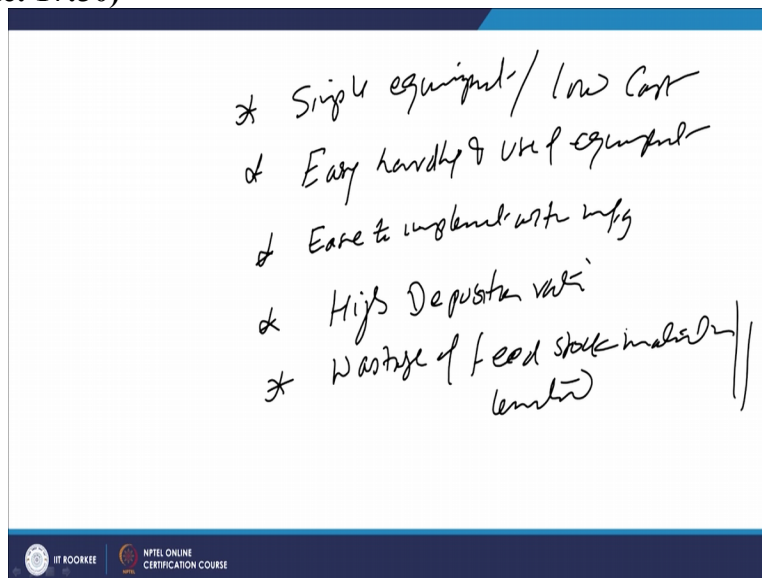 * Simple equipment / low Cost
* Easy handling & use of equipment
* Ease to implement with mfg
* High Deposition rate
* Wastage of feed stock material
IIT ROORKEE
NPTEL ONLINE
CERTIFICATION COURSE